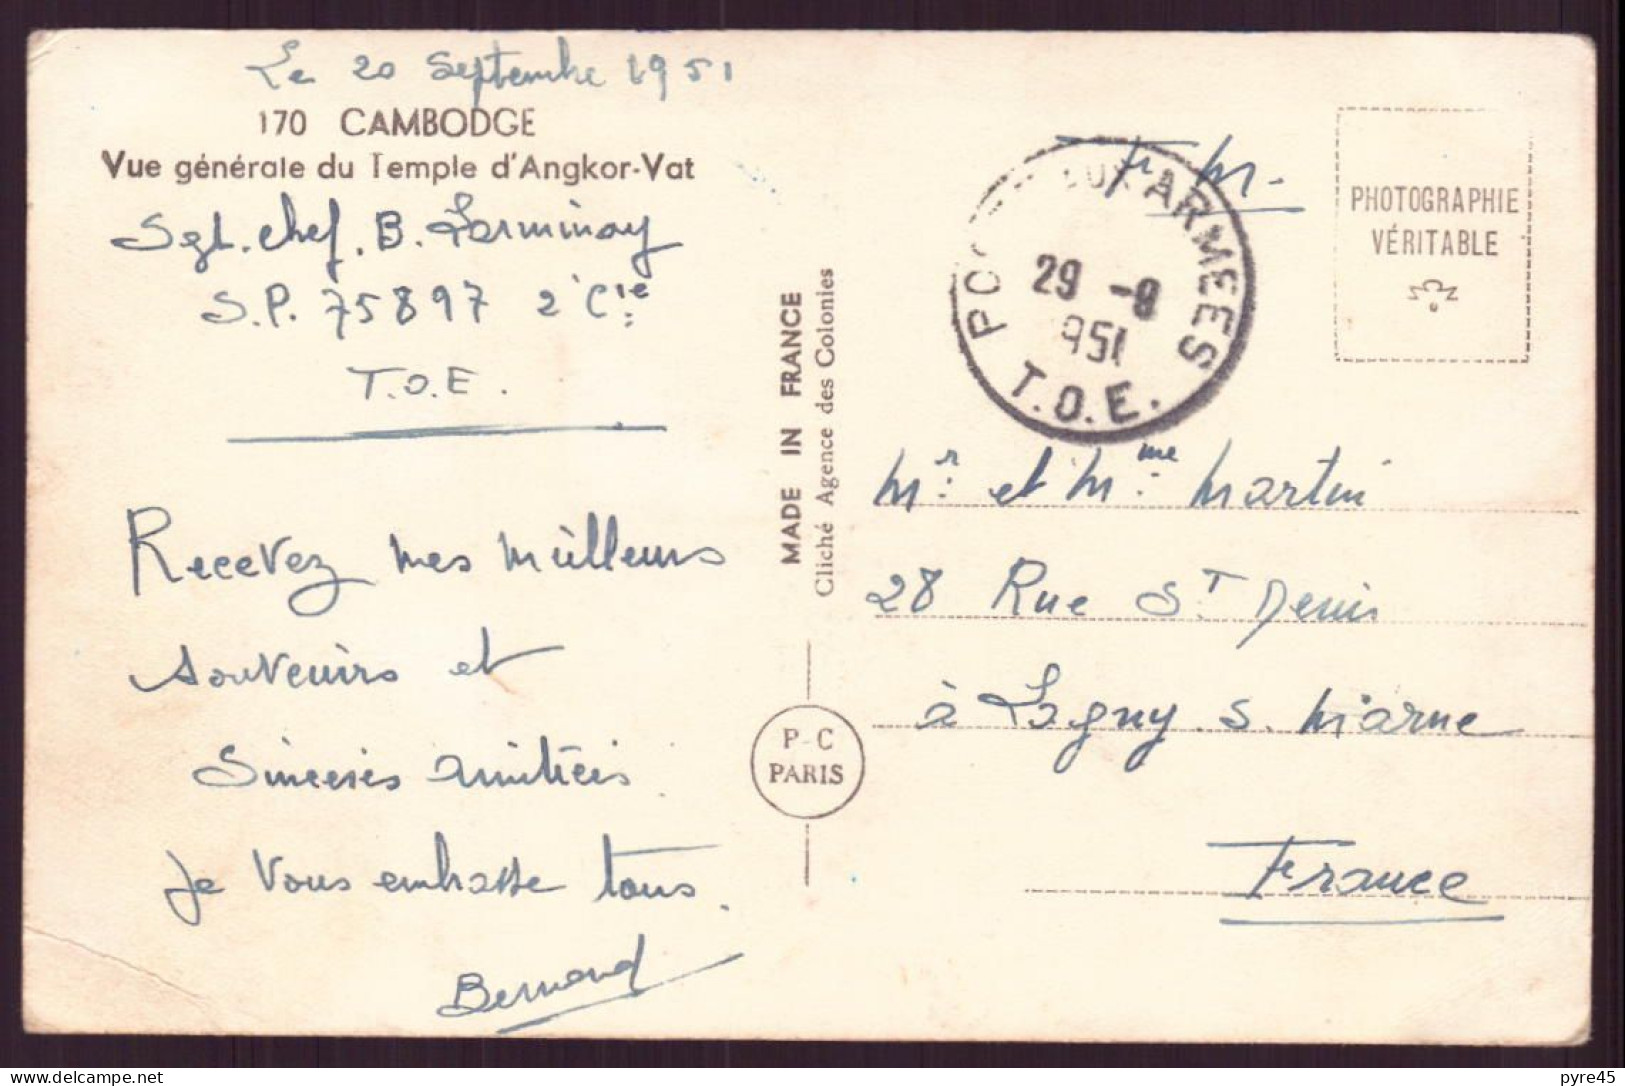 Le 20 Septembre 1951
170 CAMBODGE
Vue générale du Temple d'Angkor-Vat
Sgt. chef. B. Larminay
S.P. 75897 2e Cie
T.O.E.
Recevez mes meilleurs
souvenirs et
sincères amitiés
je vous embrasse tous.
Bernard
MADE IN FRANCE
Cliché Agence des Colonies
P-C
PARIS
F. M.
POSTE AUX ARMEES
29 -9
951
T.O.E.
PHOTOGRAPHIE
VÉRITABLE
Mr. et Mme Martin
28 Rue St Denis
à Lagny s. Marne
France
pyre45